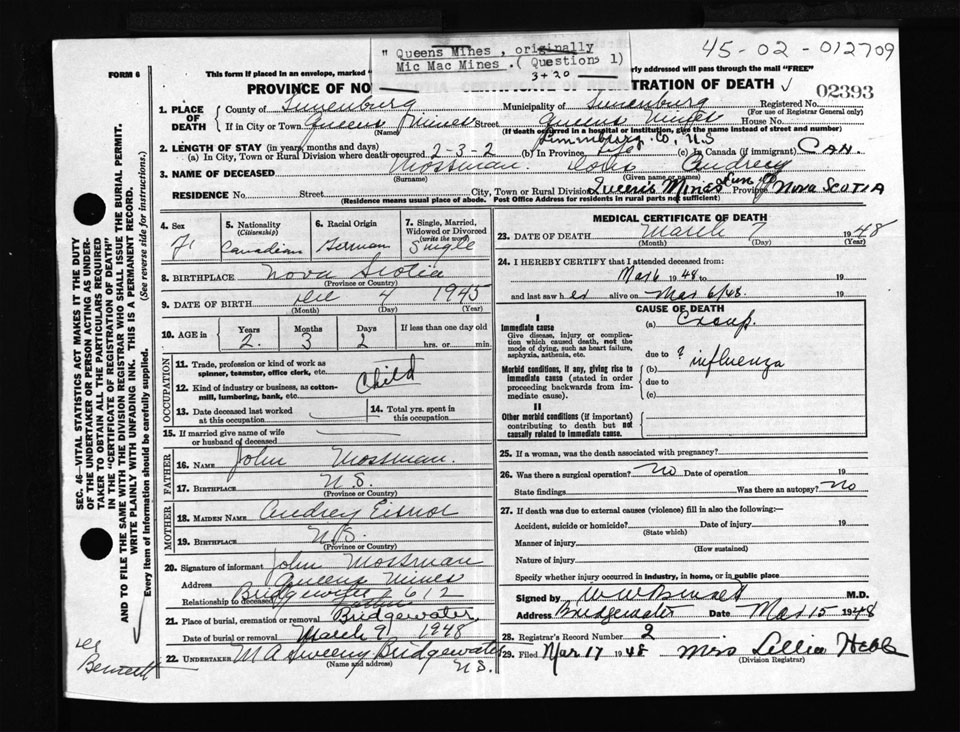 " Queens Mines , originally
Mic Mac Mines . ( Question 1)
3 + 20
45-02-012709
FORM 6
This form if placed in an envelope, marked "
rly addressed will pass through the mail "FREE"
PROVINCE OF NO
SCOTIA CERTIFICATE OF REGISTRATION OF DEATH
02393
1. PLACE OF DEATH
County of Lunenburg
Municipality of Lunenburg
Registered No.
(For use of Registrar General only)
If in City or Town Queens Mines Street Queens Mines House No.
(Name)
(If death occurred in a hospital or institution, give the name instead of street and number)
Lunenburg. Co, N.S
2. LENGTH OF STAY (in years, months and days)
(a) In City, Town or Rural Division where death occurred 2-3-2 (b) In Province Life (c) In Canada (if immigrant) CAN.
3. NAME OF DECEASED Mossman. Doris Audrey
(Surname) (Given name or names)
RESIDENCE No. Street City, Town or Rural Division Queens Mines Lun. Co Province Nova Scotia
(Residence means usual place of abode. Post Office Address for residents in rural parts not sufficient)
4. Sex
F
5. Nationality
(Citizenship)
Canadian
6. Racial Origin
German
7. Single, Married, Widowed or Divorced
(write the word)
Single
8. BIRTHPLACE Nova Scotia
(Province or Country)
9. DATE OF BIRTH Dec 4 1945
(Month) (Day) (Year)
10. AGE in Years Months Days If less than one day old
2. 3 2 hrs. or min.
OCCUPATION
11. Trade, profession or kind of work as spinner, teamster, office clerk, etc.
Child
12. Kind of industry or business, as cotton-mill, lumbering, bank, etc.
13. Date deceased last worked at this occupation
14. Total yrs. spent in this occupation
15. If married give name of wife or husband of deceased
FATHER
16. NAME John Mossman.
17. BIRTHPLACE N.S.
(Province or Country)
MOTHER
18. MAIDEN NAME Audrey Eisnor
19. BIRTHPLACE N.S.
(Province or Country)
20. Signature of informant John Mossman
Address Queens Mines
Bridgewater 612
Relationship to deceased Father
21. Place of burial, cremation or removal Bridgewater
Date of burial or removal March 9 1948
22. UNDERTAKER M A Sweeny Bridgewater
(Name and address) N.S.
MEDICAL CERTIFICATE OF DEATH
23. DATE OF DEATH March 7 1948
(Month) (Day) (Year)
24. I HEREBY CERTIFY that I attended deceased from:
Mar 6 1948 to 19
and last saw h er alive on Mar 6/48. 19
CAUSE OF DEATH
I
Immediate cause
Give disease, injury or complication which caused death, not the mode of dying, such as heart failure, asphyxia, asthenia, etc.
(a) Croup.
due to ? influenza
Morbid conditions, if any, giving rise to immediate cause (stated in order proceeding backwards from immediate cause).
(b)
due to
(c)
II
Other morbid conditions (if important) contributing to death but not causally related to immediate cause.
25. If a woman, was the death associated with pregnancy?
26. Was there a surgical operation? No Date of operation 19
State findings Was there an autopsy? No
27. If death was due to external causes (violence) fill in also the following:—
Accident, suicide or homicide? Date of injury 19
(State which)
Manner of injury
(How sustained)
Nature of injury
Specify whether injury occurred in industry, in home, or in public place
Signed by W W Bennett M.D.
Address Bridgewater Date Mar 15 1948
28. Registrar's Record Number 2
29. Filed Mar 17 1948 Miss Lillia Hebb
(Division Registrar)
SEC. 46—VITAL STATISTICS ACT MAKES IT THE DUTY
OF THE UNDERTAKER OR PERSON ACTING AS UNDER-
TAKER TO OBTAIN ALL THE PARTICULARS REQUIRED
IN THE "CERTIFICATE OF REGISTRATION OF DEATH"
AND TO FILE THE SAME WITH THE DIVISION REGISTRAR WHO SHALL ISSUE THE BURIAL PERMIT.
WRITE PLAINLY WITH UNFADING INK. THIS IS A PERMANENT RECORD.
Every item of Information should be carefully supplied. (See reverse side for instructions.)
Bennett